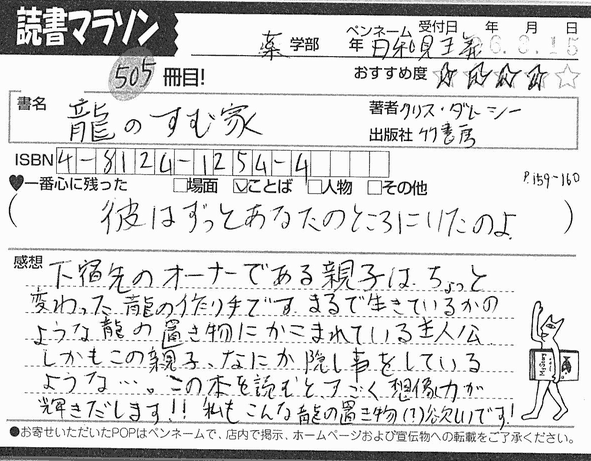 読書マラソン
ペンネーム 受付日 年 月 日
薬 学部 年 日和見主義 6.8.15
505 冊目!
おすすめ度 ★★★★☆
書名 龍のすむ家
著者 クリス・ダレーシー
出版社 竹書房
ISBN 4-8124-1254-4
♥一番心に残った □場面 ☑ことば □人物 □その他 P.159-160
( 彼はずっとあなたのところにいたのよ )
感想 下宿先のオーナーである親子は、ちょっと
変わった龍の作り手です。まるで生きているかの
ような龍の置き物にかこまれている主人公。
しかもこの親子、なにか隠し事をしている
ような…。この本を読むと、すごく想像力が
輝きだします!!私もこんな龍の置き物(?)欲しいです!
●お寄せいただいたPOPはペンネームで、店内で掲示、ホームページおよび宣伝物への転載をご了承ください。